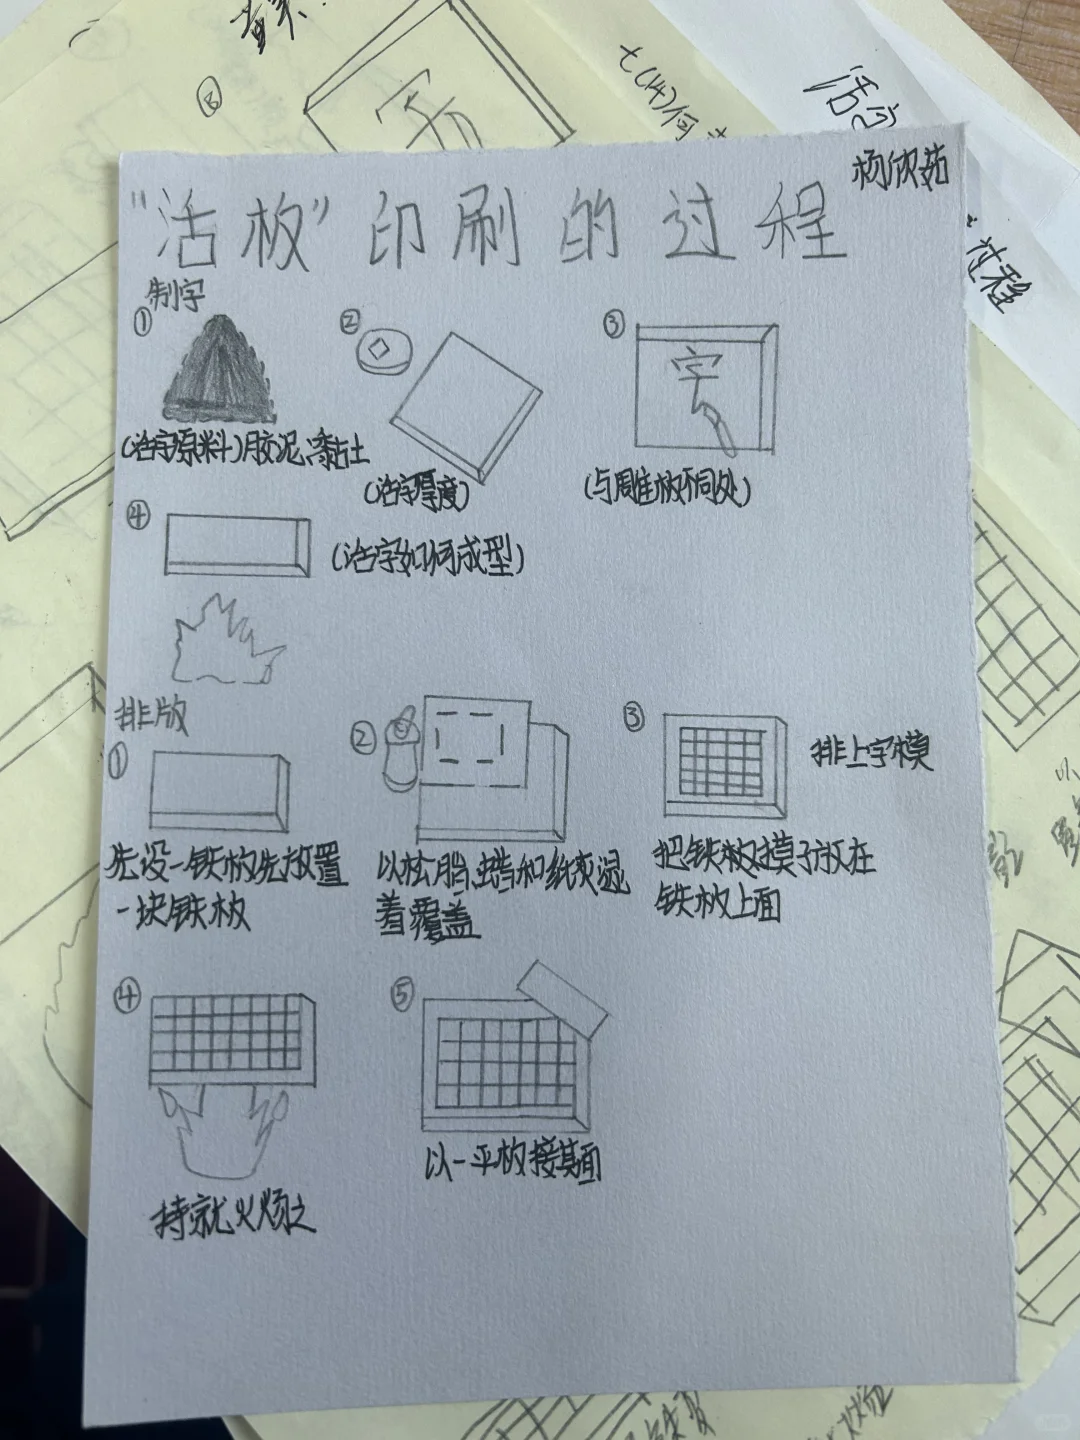 活字
过程
杨欣茹
“活板”印刷的过程
制字
①
(活字原料)胶泥、黏土
②
(活字厚度)
③
字
(与雕版不同处)
④
(活字如何成型)
排版
①
先设一铁板先放置
一块铁板
②
以松脂、蜡和纸灰混
着覆盖
③
排上字模
把铁板摸子放在
铁板上面
④
持就火炀之
⑤
以一平板按其面